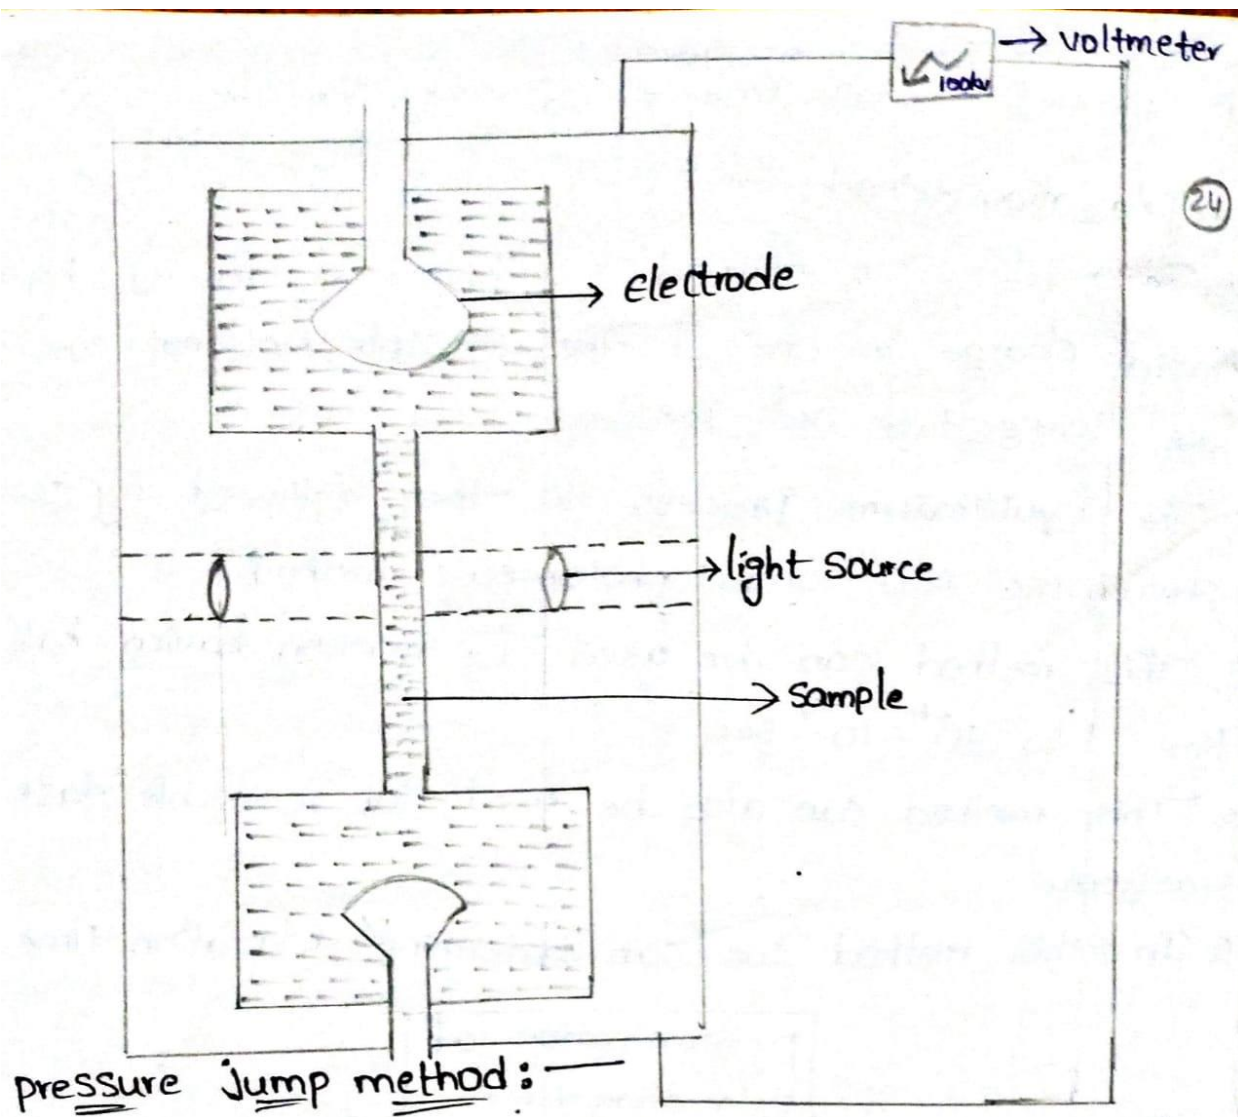 voltmeter
100kv
24
Electrode
light source
sample
pressure jump method: